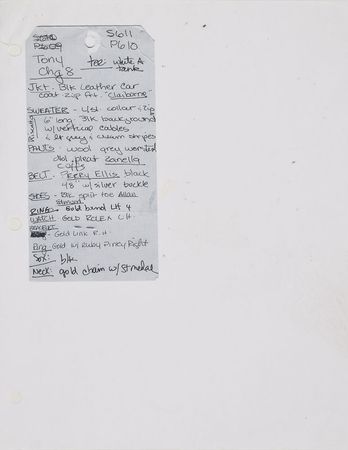 S611
P610
Tony
Chg 8
tee: white A-
tank
JKT - Blk Leather Car
coat zip frt. "Claiborne"
SWEATER - 4/st. collar & zip
6" long Blk background
w/vertical cables
& lt grey & cream stripes
PANTS: wool grey worsted
dbl pleat Zanella
cuffs
BELT - Perry Ellis black
48" w/silver buckle
SHOES - Blk split toe Allen
Edmond
RING - Gold band LH 4
WATCH - GOLD ROLEX LH
BRACELET
- Gold Link R.H
Ring Gold w/ Ruby Pinky Right
Sox: blk
Neck: gold chain w/St medal